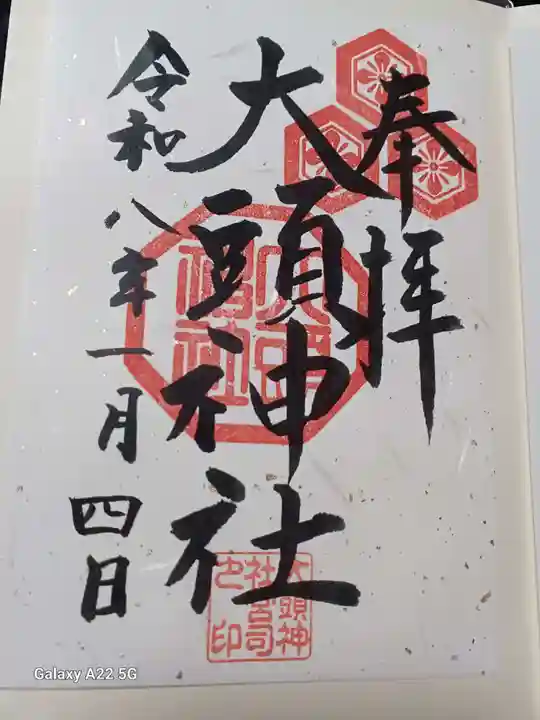 奉拝
大頭神社
令和八年一月四日
大頭神
社宮司
之印
Galaxy A22 5G